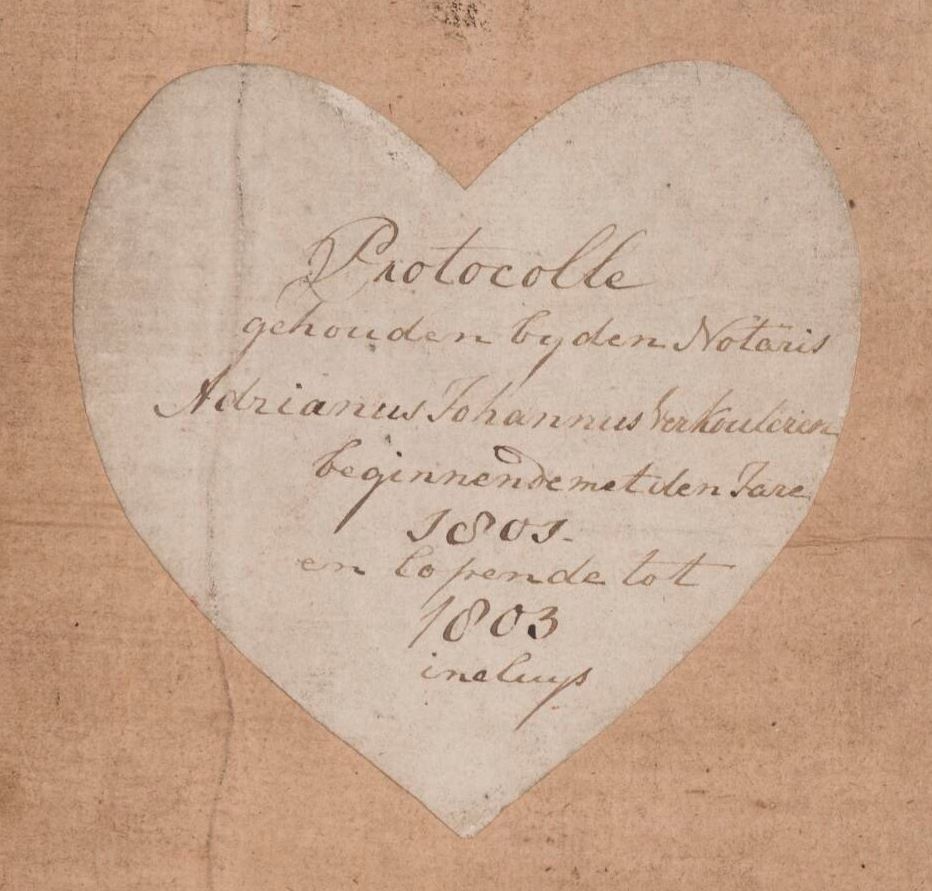 Protocolle
gehouden by den Notaris
Adrianus Johannus Verkouteren
beginnende met den Jare
1801.
en lopende tot
1803
incluys